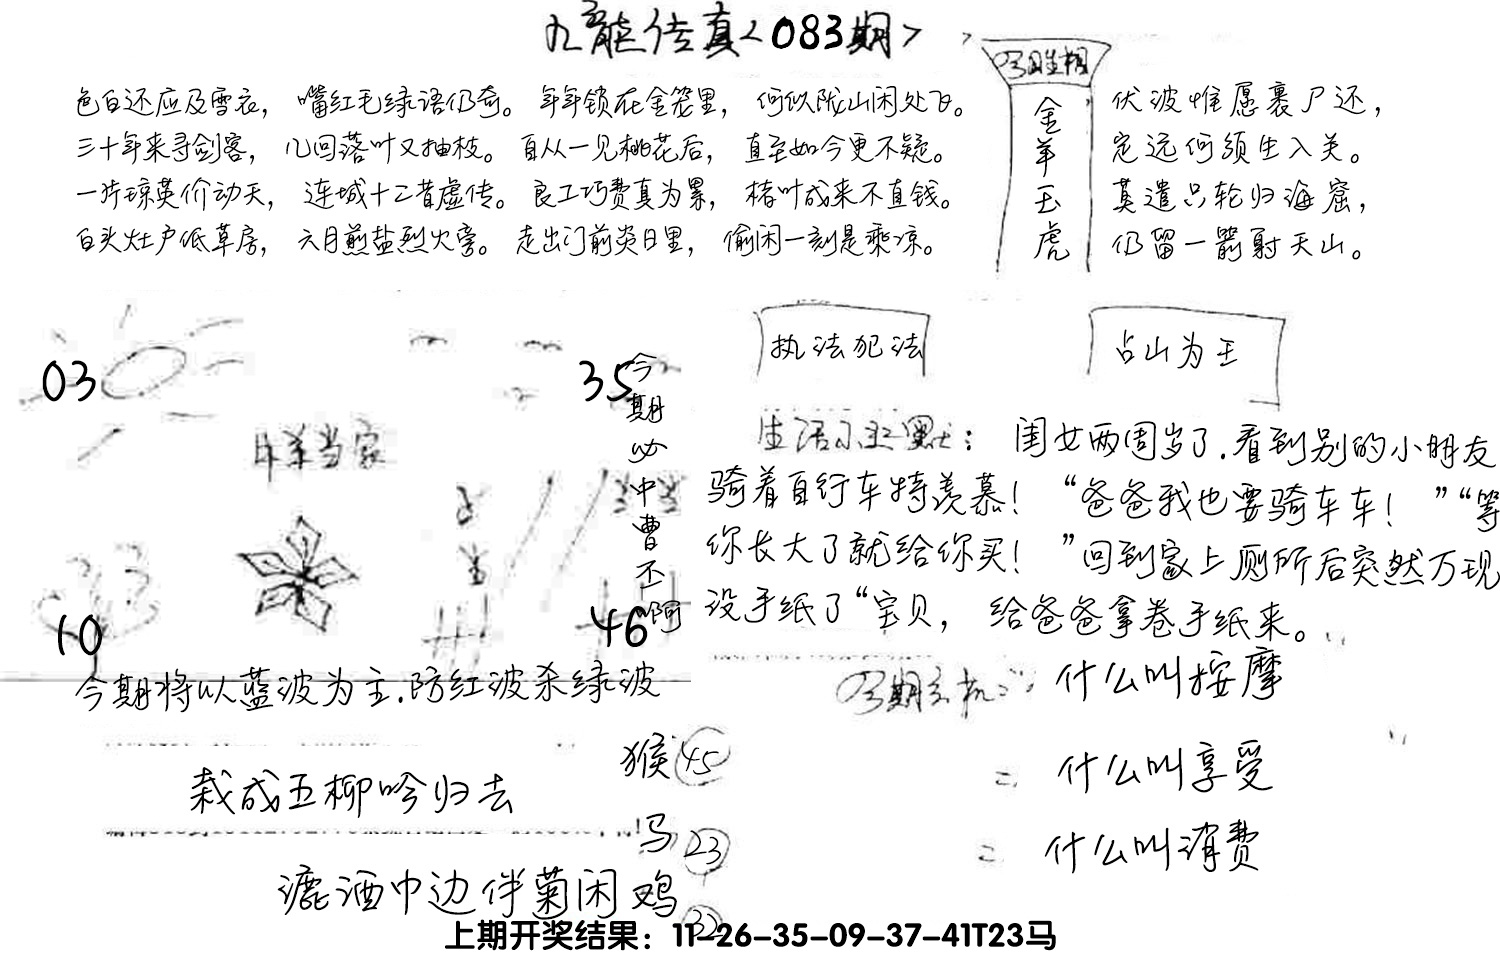 九龍传真<083期>
色白还应及雪衣，嘴红毛绿语仍奇。年年锁在金笼里，何似陇山闲处飞。
三十年来寻剑客，几回落叶又抽枝。自从一见桃花后，直至如今更不疑。
一片琼英价动天，连城十二昔虚传。良工巧费真为累，楮叶成来不直钱。
白头灶户低草房，六月煎盐烈火旁。走出门前炎日里，偷闲一刻是乘凉。
金羊玉虎
伏波惟愿裹尸还，
定远何须生入关。
莫遣只轮归海窟，
仍留一箭射天山。
03
35
羊当家
10
46
今期必中曹丕啊
今期将以蓝波为主.防红波杀绿波
执法犯法
占山为王
生活幽默：闺女两周岁了.看到别的小朋友
骑着自行车特羡慕！“爸爸我也要骑车车！”“等
你长大了就给你买！”回到家上厕所后突然万现
没手纸了“宝贝，给爸爸拿卷手纸来。
今期玄机：什么叫按摩
= 什么叫享受
= 什么叫消费
栽成五柳吟归去
漉酒巾边伴菊闲
猴 45
马 23
鸡 32
上期开奖结果：11-26-35-09-37-41T23马